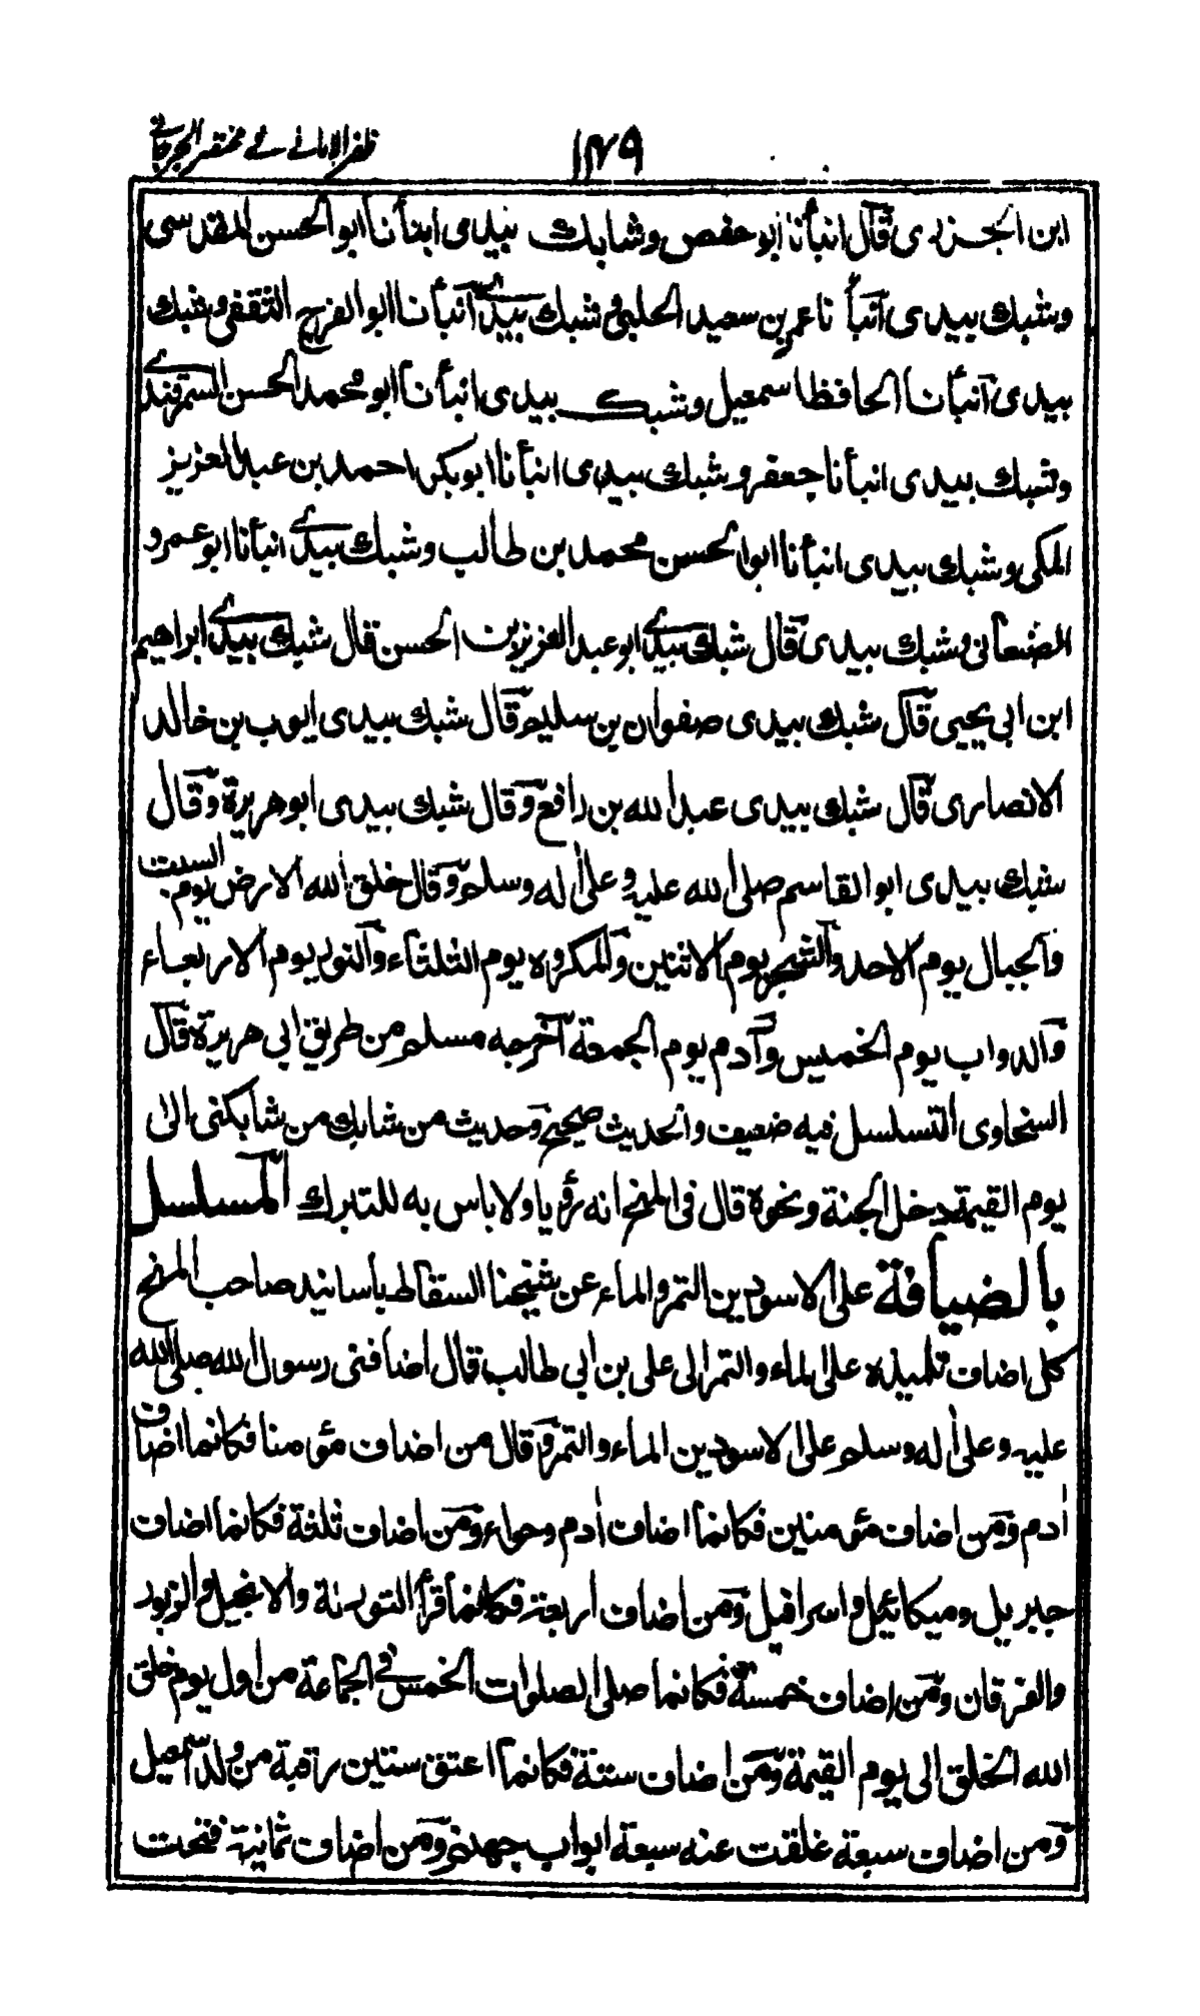 ظفر الامانی فی مختصر الجرجانی
١٤٩
ابن الجزری قال انبأنا ابو حفص وشابك بیدی انبأنا ابو الحسن المقدسی
وشبك بیدی انبأنا عمر بن سعید الحلبی وشبك بیدی انبأنا ابو الفرج الثقفی وشبك
بیدی انبأنا الحافظ اسمعیل وشبك بیدی انبأنا ابو محمد الحسن السمرقندی
وشبك بیدی انبأنا جعفر وشبك بیدی انبأنا ابو بکر احمد بن عبد العزیز
المکی وشبك بیدی انبأنا ابو الحسن محمد بن طالب وشبك بیدی انبأنا ابو عمرو
الصنعانی وشبك بیدی قال شبك بیدی ابو عبد العزیز بن الحسن قال شبك بیدی ابراهیم
ابن ابی یحیی قال شبك بیدی صفوان بن سلیم قال شبك بیدی ایوب بن خالد
الانصاری قال شبك بیدی عبد الله بن رافع وقال شبك بیدی ابو هریرة وقال
شبك بیدی ابو القاسم صلی الله علیه وعلی اٰله وسلم وقال خلق الله الارض یوم السبت
والجبال یوم الاحد والشجر یوم الاثنین والمکروه یوم الثلثاء والنور یوم الاربعاء
والدواب یوم الخمیس وآدم یوم الجمعة اخرجه مسلم من طریق ابی هریرة قال
السخاوی التسلسل فیه ضعیف والحدیث صحیح وحدیث من شابك من شابکنی الی
یوم القیمة دخل الجنة ونحوه قال فی المنح انه رؤیا ولا باس به للتبرك المسلسل
بالضیافة علی الاسودین التمر والماء عن شیخنا السقاط باسانید صاحب المنح
کل اضاف تلمیذه علی الماء والتمر الی علی بن ابی طالب قال اضافنی رسول الله صلی الله
علیه وعلی اٰله وسلم علی الاسودین الماء والتمر وقال من اضاف مؤمنا فکانما اضاف
اٰدم ومن اضاف مؤمنین فکانما اضاف اٰدم وحواء ومن اضاف ثلثة فکانما اضاف
جبریل ومیکائیل واسرافیل ومن اضاف اربعة فکانما قرأ التورٰة والانجیل والزبور
والفرقان ومن اضاف خمسة فکانما صلی الصلوات الخمس فی الجماعة من اول یوم خلق
الله الخلق الی یوم القیمة ومن اضاف ستة فکانما اعتق ستین رقبة من ولد اسمعیل
ومن اضاف سبعة غلقت عنه سبعة ابواب جهنم ومن اضاف ثمانیة فتحت